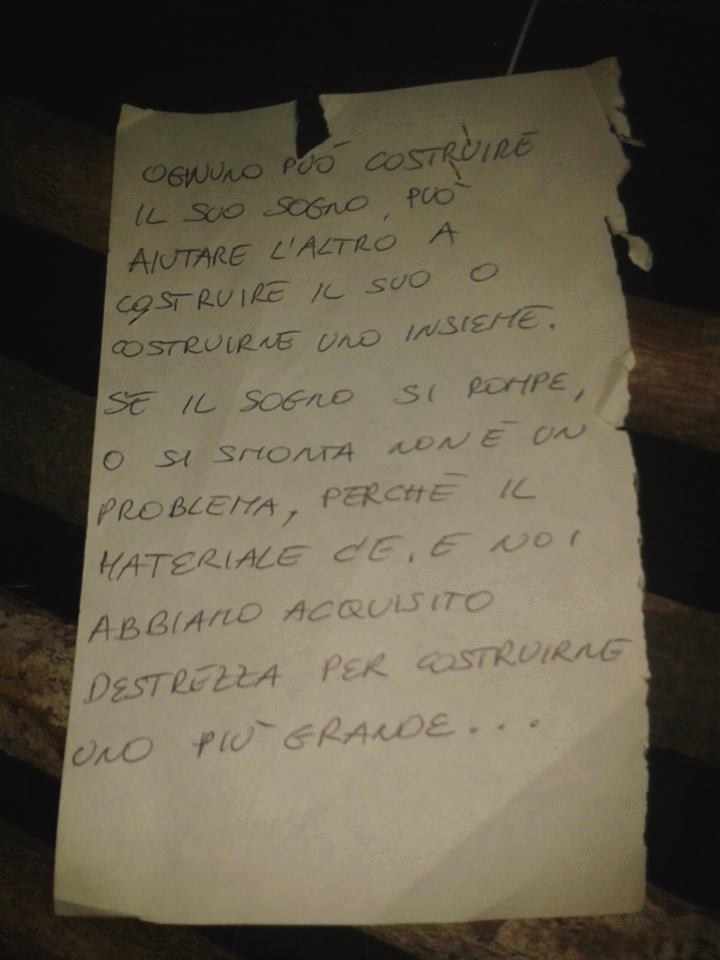 OGNUNO PUÒ COSTRUIRE
IL SUO SOGNO, PUÒ
AIUTARE L'ALTRO A
COSTRUIRE IL SUO O
COSTRUIRNE UNO INSIEME.
SE IL SOGNO SI ROMPE,
O SI SMONTA NON È UN
PROBLEMA, PERCHÈ IL
MATERIALE C'E, E NOI
ABBIAMO ACQUISITO
DESTREZZA PER COSTRUIRNE
UNO PIÙ GRANDE...